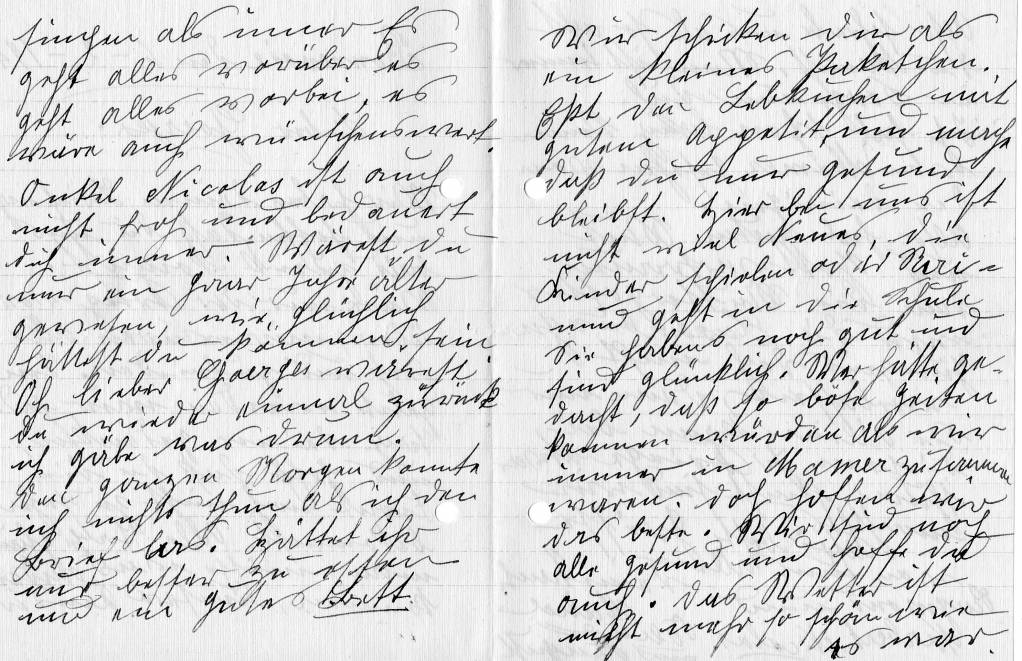 singen als immer Es
geht alles vorüber es
geht alles vorbei, es
wäre auch wünschenswert.
Onkel Nicolas ist auch
nicht froh und bedauert
dich immer. Wärest du
nur ein paar Jahre älter
gewesen, wie glücklich
hättest du können sein
Och lieber Georges wärest
du wieder einmal zurück
ich gäbe was drum.
Den ganzen Morgen konnte
ich nichts thun als ich den
Brief las. Hättet ihr
nur besser zu essen
und ein gutes Bett.
Wir schicken dir als
ein kleines Paketchen.
Eßt den Lebkuchen mit
gutem Appetit, und mache
daß du nur gesund
bleibst. Hier bei uns ist
nicht viel Neues, die
Kinder spielen oder
und geht in die Schule
Sie habens noch gut und
sind glücklich. Wer hätte ge-
dacht, daß so böse Zeiten
kommen würden als wir
immer in Mamer zusammen
waren. doch hoffen wir
das beste. Wir sind noch
alle gesund und hoffe du
auch. Das Wetter ist
nicht mehr so schön wie
es war.